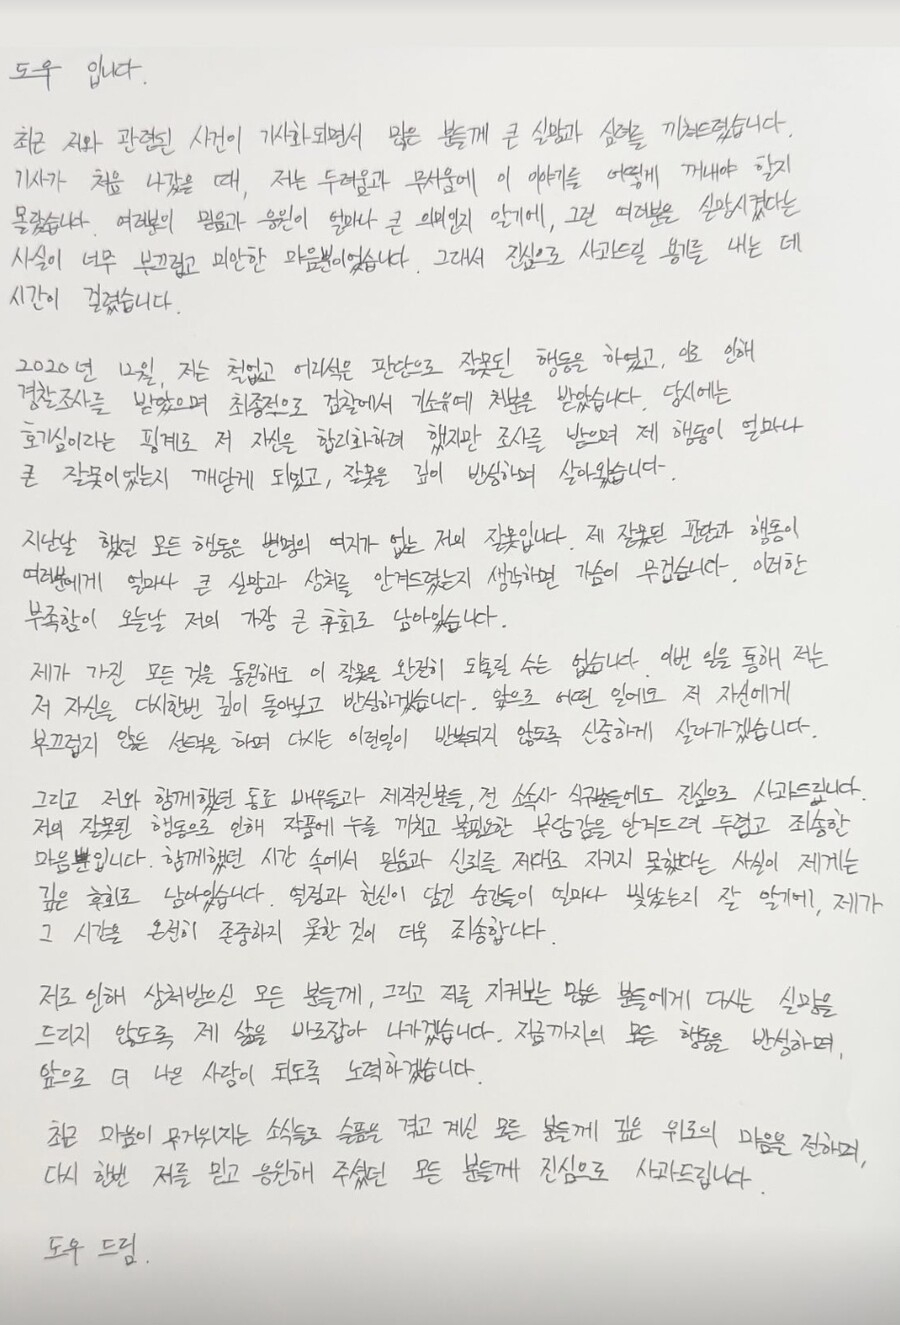 도우 입니다.
최근 저와 관련된 사건이 기사화되면서 많은 분들께 큰 실망과 심려를 끼쳐드렸습니다.
기사가 처음 나갔을 때, 저는 두려움과 무서움에 이 이야기를 어떻게 꺼내야 할지
몰랐습니다. 여러분의 믿음과 응원이 얼마나 큰 의미인지 알기에, 그런 여러분을 실망시켰다는
사실이 너무 부끄럽고 미안한 마음뿐이었습니다. 그래서 진심으로 사과드릴 용기를 내는 데
시간이 걸렸습니다.
2020년 12월, 저는 철없고 어리석은 판단으로 잘못된 행동을 하였고, 이로 인해
경찰조사를 받았으며 최종적으로 검찰에서 기소유예 처분을 받았습니다. 당시에는
호기심이라는 핑계로 저 자신을 합리화하려 했지만 조사를 받으며 제 행동이 얼마나
큰 잘못이었는지 깨닫게 되었고, 잘못을 깊이 반성하며 살아왔습니다.
지난날 했던 모든 행동은 변명의 여지가 없는 저의 잘못입니다. 제 잘못된 판단과 행동이
여러분에게 얼마나 큰 실망과 상처를 안겨드렸는지 생각하면 가슴이 무겁습니다. 이러한
부족함이 오늘날 저의 가장 큰 후회로 남아있습니다.
제가 가진 모든 것을 동원해도 이 잘못을 완전히 되돌릴 수는 없습니다. 이번 일을 통해 저는
저 자신을 다시한번 깊이 돌아보고 반성하겠습니다. 앞으로 어떤 일에도 저 자신에게
부끄럽지 않은 선택을 하며 다시는 이런일이 반복되지 않도록 신중하게 살아가겠습니다.
그리고 저와 함께했던 동료 배우들과 제작진분들, 전 소속사 식구분들에도 진심으로 사과드립니다.
저의 잘못된 행동으로 인해 작품에 누를 끼치고 불필요한 부담감을 안겨드려 두렵고 죄송한
마음뿐입니다. 함께했던 시간 속에서 믿음과 신뢰를 제대로 지키지 못했다는 사실이 제게는
깊은 후회로 남아있습니다. 열정과 헌신이 담긴 순간들이 얼마나 빛났는지 잘 알기에, 제가
그 시간을 온전히 존중하지 못한 것이 더욱 죄송합니다.
저로 인해 상처받으신 모든 분들께, 그리고 저를 지켜보는 많은 분들에게 다시는 실망을
드리지 않도록 제 삶을 바로잡아 나가겠습니다. 지금까지의 모든 행동을 반성하며,
앞으로 더 나은 사람이 되도록 노력하겠습니다.
최근 마음이 무거워지는 소식들로 슬픔을 겪고 계신 모든 분들께 깊은 위로의 마음을 전하며,
다시 한번 저를 믿고 응원해 주셨던 모든 분들께 진심으로 사과드립니다.
도우 드림.